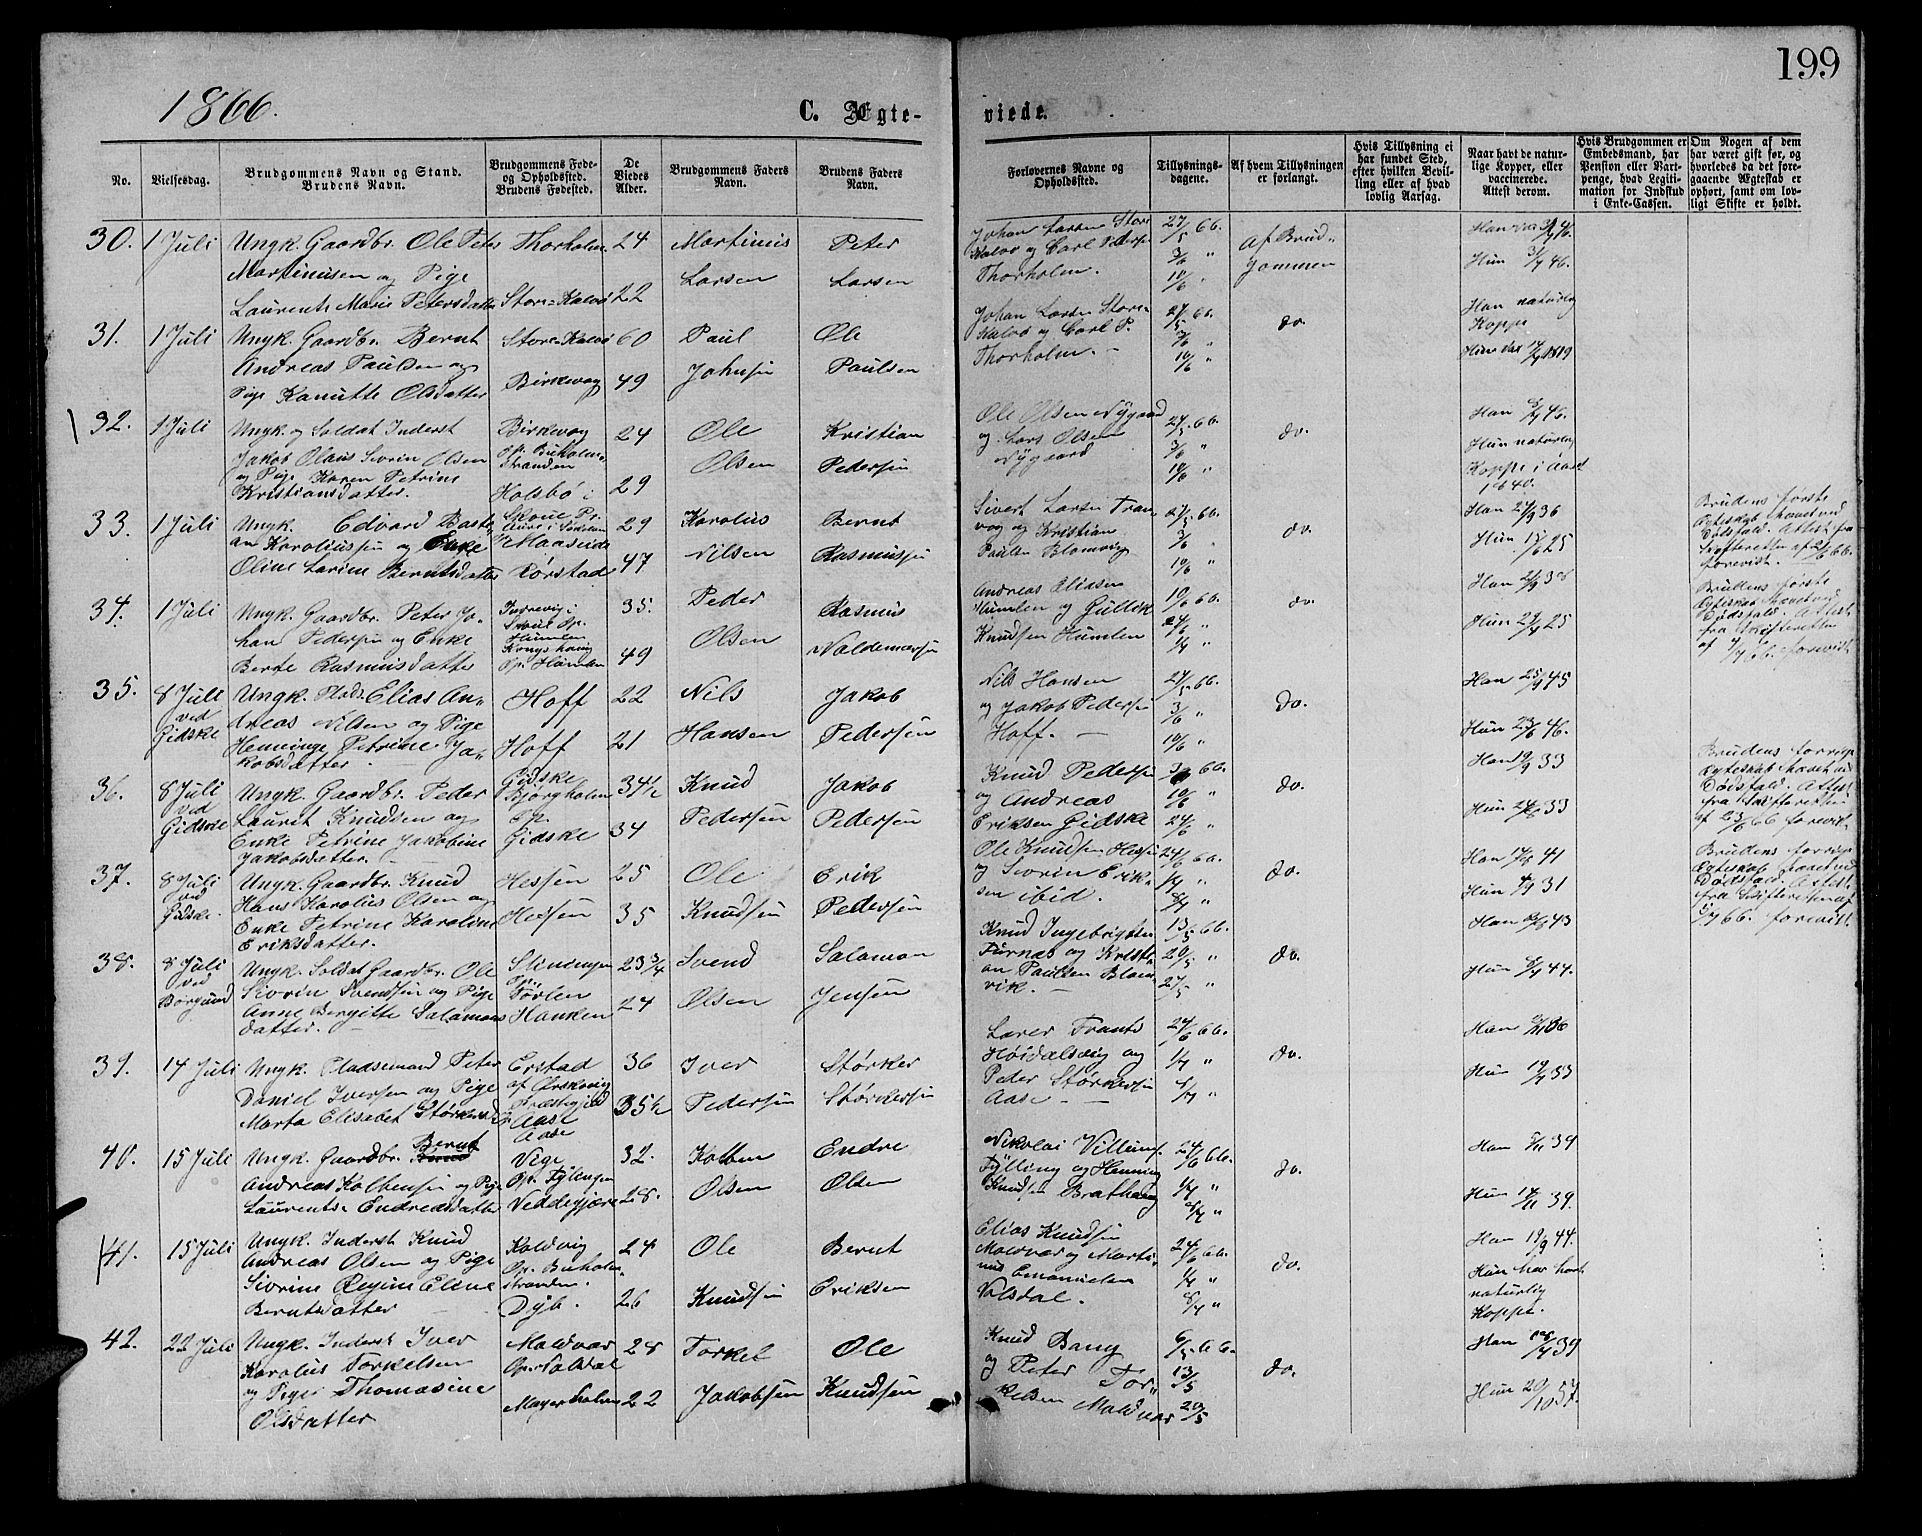 199
1866.
C. Ægte-
viede.
No.
Vielsesdag.
Brudgommens Navn og Stand.
Brudens Navn.
Brudgommens Føde-
og Opholdssted.
Brudens Fødested.
De
Viedes
Alder.
Brudgommens Faders
Navn.
Brudens Faders
Navn.
Forlovernes Navne og
Opholdssted.
Tillysnings-
dagene.
Af hvem Tillysningen
er forlangt.
Hvis Tillysning ei
har fundet Sted,
efter hvilken Bevil-
ling eller af hvad
lovlig Aarsag.
Naar havt de natur-
lige Kopper, eller
vaccinerede.
Attest derom.
Hvis Brudgommen er
Embedsmand, har
Pension eller Vart-
penge, hvad Legiti-
mation for Indskud
i Enke-Cassen.
Om Nogen af dem
har været gift før, og
hvorledes da det fore-
gaaende Ægteskab er
ophørt, samt om lov-
ligt Skifte er holdt.
30. 1 Juli Ungk. Gaardbr. Ole Peter Thorholm 24 Martinus Peter
Martinusen og Pige Larsen Larsen
Laurents Marie Petersdatter Store-Kalvø 22
Johan Larsen Store 27/5 66. Af Brud-
Kalvø og Carl Peders 3/6 " gommen
Thorholm. 10/6 "
Hun 46.
31. 1 Juli Ungk. Gaardbr. Bernt Store-Kalvø 60 Paul Ole
Andreas Paulsen og Johnsen Paulsen
Pige Kanutte Olsdatter Birkevog 49
Johan Larsen Store- 27/5 66. do.
Kalvø og Carl P. 3/6 "
Thorholm. - 10/6 "
Han naturlig
Koppe
Hun vac 1819
32. 1 Juli Ungk. og Soldat Inderst Birkevog 24 Ole Kristian
Jakob Olaus Sivrin Olsen Op. Buholm- Olsen Pedersen
og Pige Karen Petrine stranden
Kristiansdatter. Holsbø i 29
Skoue Pr.
Ole Olsen Nygaard 27/5 66. do.
og Lars Olsen 3/6 "
Nygaard 10/6 "
Han 46.
Hun naturlig
Koppe i Aaret
1840.
33. 1 Juli Ungk. Edvard Basti- 29 Karolus Bernt
an Karoliussen og Enke Maaseide Nilsen Rasmussen
Oline Larine Berntsdatter Rørstad 47
Sivert Larsen Tran- 27/5 66. do.
vog og Kristian 3/6 "
Paulsen Blomvig 10/6 "
Han 36
Hun 25
Brudens første
Ægteskab hævet ved
Dødsfald. Attest fra
Skifteretten af 2/6 66.
forevist.
34. 1 Juli Ungk. Gaardbr. Peter Jo- Indrevig i 35. Peder Rasmus
han Pedersen og Enke Skoue Op. Olsen Valdemarsen
Berte Rasmusdatter Humlen
Kongshaug 49
Op. Humlen
Andreas Eliasen 10/6 66. do.
Humlen og Gullik 24/6
Knudsen Humlen 1/7
Han 38
Hun 25
Brudens første
Ægteskab hævet ved
Dødsfald. Attest
fra Skifteretten
af 1/7 66. forevist
35. 8 Juli Ungk. Plads. Elias An- Hoff 22 Nils Jakob
ved dreas Nilsen og Pige
Gidske Henninge Petrine Ja- Hoff 21 Hansen Pedersen
kobsdatter.
Nils Hansen 27/5 66. do.
og Jakob Pedersen 3/6 "
Hoff. - 10/6 "
Han 45
Hun 46.
36. 8 Juli Ungk. Gaardbr. Peder Gidske 34½ Knud Jakob
ved Laurit Knudsen og Bjørgholm
Gidske Enke Petrine Jakobine Op. Gidske 34 Pedersen Pedersen
Jakobsdatter. -
Knud Pedersen 66. do.
og Andreas 10/6 "
Eriksen Gidske 24/6 "
Han 33
Hun 33
Brudens forrige
Ægteskab hævet ved
Dødsfald. Attest
fra Skifteretten
af 23/6 66 forevist.
37. 8 Juli Ungk. Gaardbr. Knud Hessen 25 Ole Erik
ved Hans Karolus Olsen og
Gidske. Enke Petrine Karoline Hessen 35 Knudsen Pedersen
Eriksdatter.
Ole Knudsen Hessen 24/6 66. do.
og Sivrin Erik- 1/7 "
sen ibid. 8/7 "
Han 41
Hun 31
Brudens forrige
Ægteskab hævet ved
Dødsfald. Attest
fra Skifteretten af
66. forevist.
38. 8 Juli Ungk. Soldat Gaardbr. Ole 23¾ Svend Salamon
ved Sivrin Svendsen og Pige Op.
Borgund Anne Bergitte Salamons Hanken 24 Olsen Jensen
datter. -
Knud Ingebrigtsen 13/5 66. do.
Furnæs og Kristi- 20/5 "
an Paulsen Blom- 27/5 "
vik. -
Han 43
Hun 44.
39. 14 Juli Ungk. Pladsemand Peter Erstad 36 Iver Størker
Daniel Iversen og Pige af Ørskovig
Marta Elisabet Størkersd. Præstegjeld 35½ Pedersen Størkersen
Aase
Aase
Lærer Frants 24/6 66. do.
Høidalsvig og 1/7 "
Peder Størkersen 8/7 "
Aase - -
Han 36
Hun 33
40. 15 Juli Ungk. Gaardbr. Bernt Vege 32. Kolben Endre
Andreas Kolbensen og Pige Op. Fyllingen Olsen Olsen
Laurentse Endresdatter Veddegjære 28.
Nikolai Villums. 24/6 66. do.
Fylling og Henning 1/7 "
Knudsen Brathaug 8/7 "
Han 39
Hun 39.
41. 15 Juli Ungk. Inderst Knud Kaldvig 24 Ole Bernt
Andreas Olsen og Pige Op. Buholm-
Sivrine Regine Eline stranden. Knudsen Eriksen
Berntsdatter - Dyb. 26
Elias Knudsen 24/6 66. do.
Maldvær og Marti- 1/7 "
nus Emanuelsen 8/7 "
Volsdal.
Han 19/9 44.
Hun har havt
naturlig
Koppe.
42. 22 Juli Ungk. Inderst Iver Maldvær 28 Torkel Ole
Karolus Torkelsen Op. Voldal
og Pige Thomasine Mayerholm 22 Jakobsen Knudsen
Olsdatter
Knud Bang 6/5 66. do.
og Peter Tor- 13/5
kelsen Maldvær 20/5
Han 39
Hun 20/10 57.